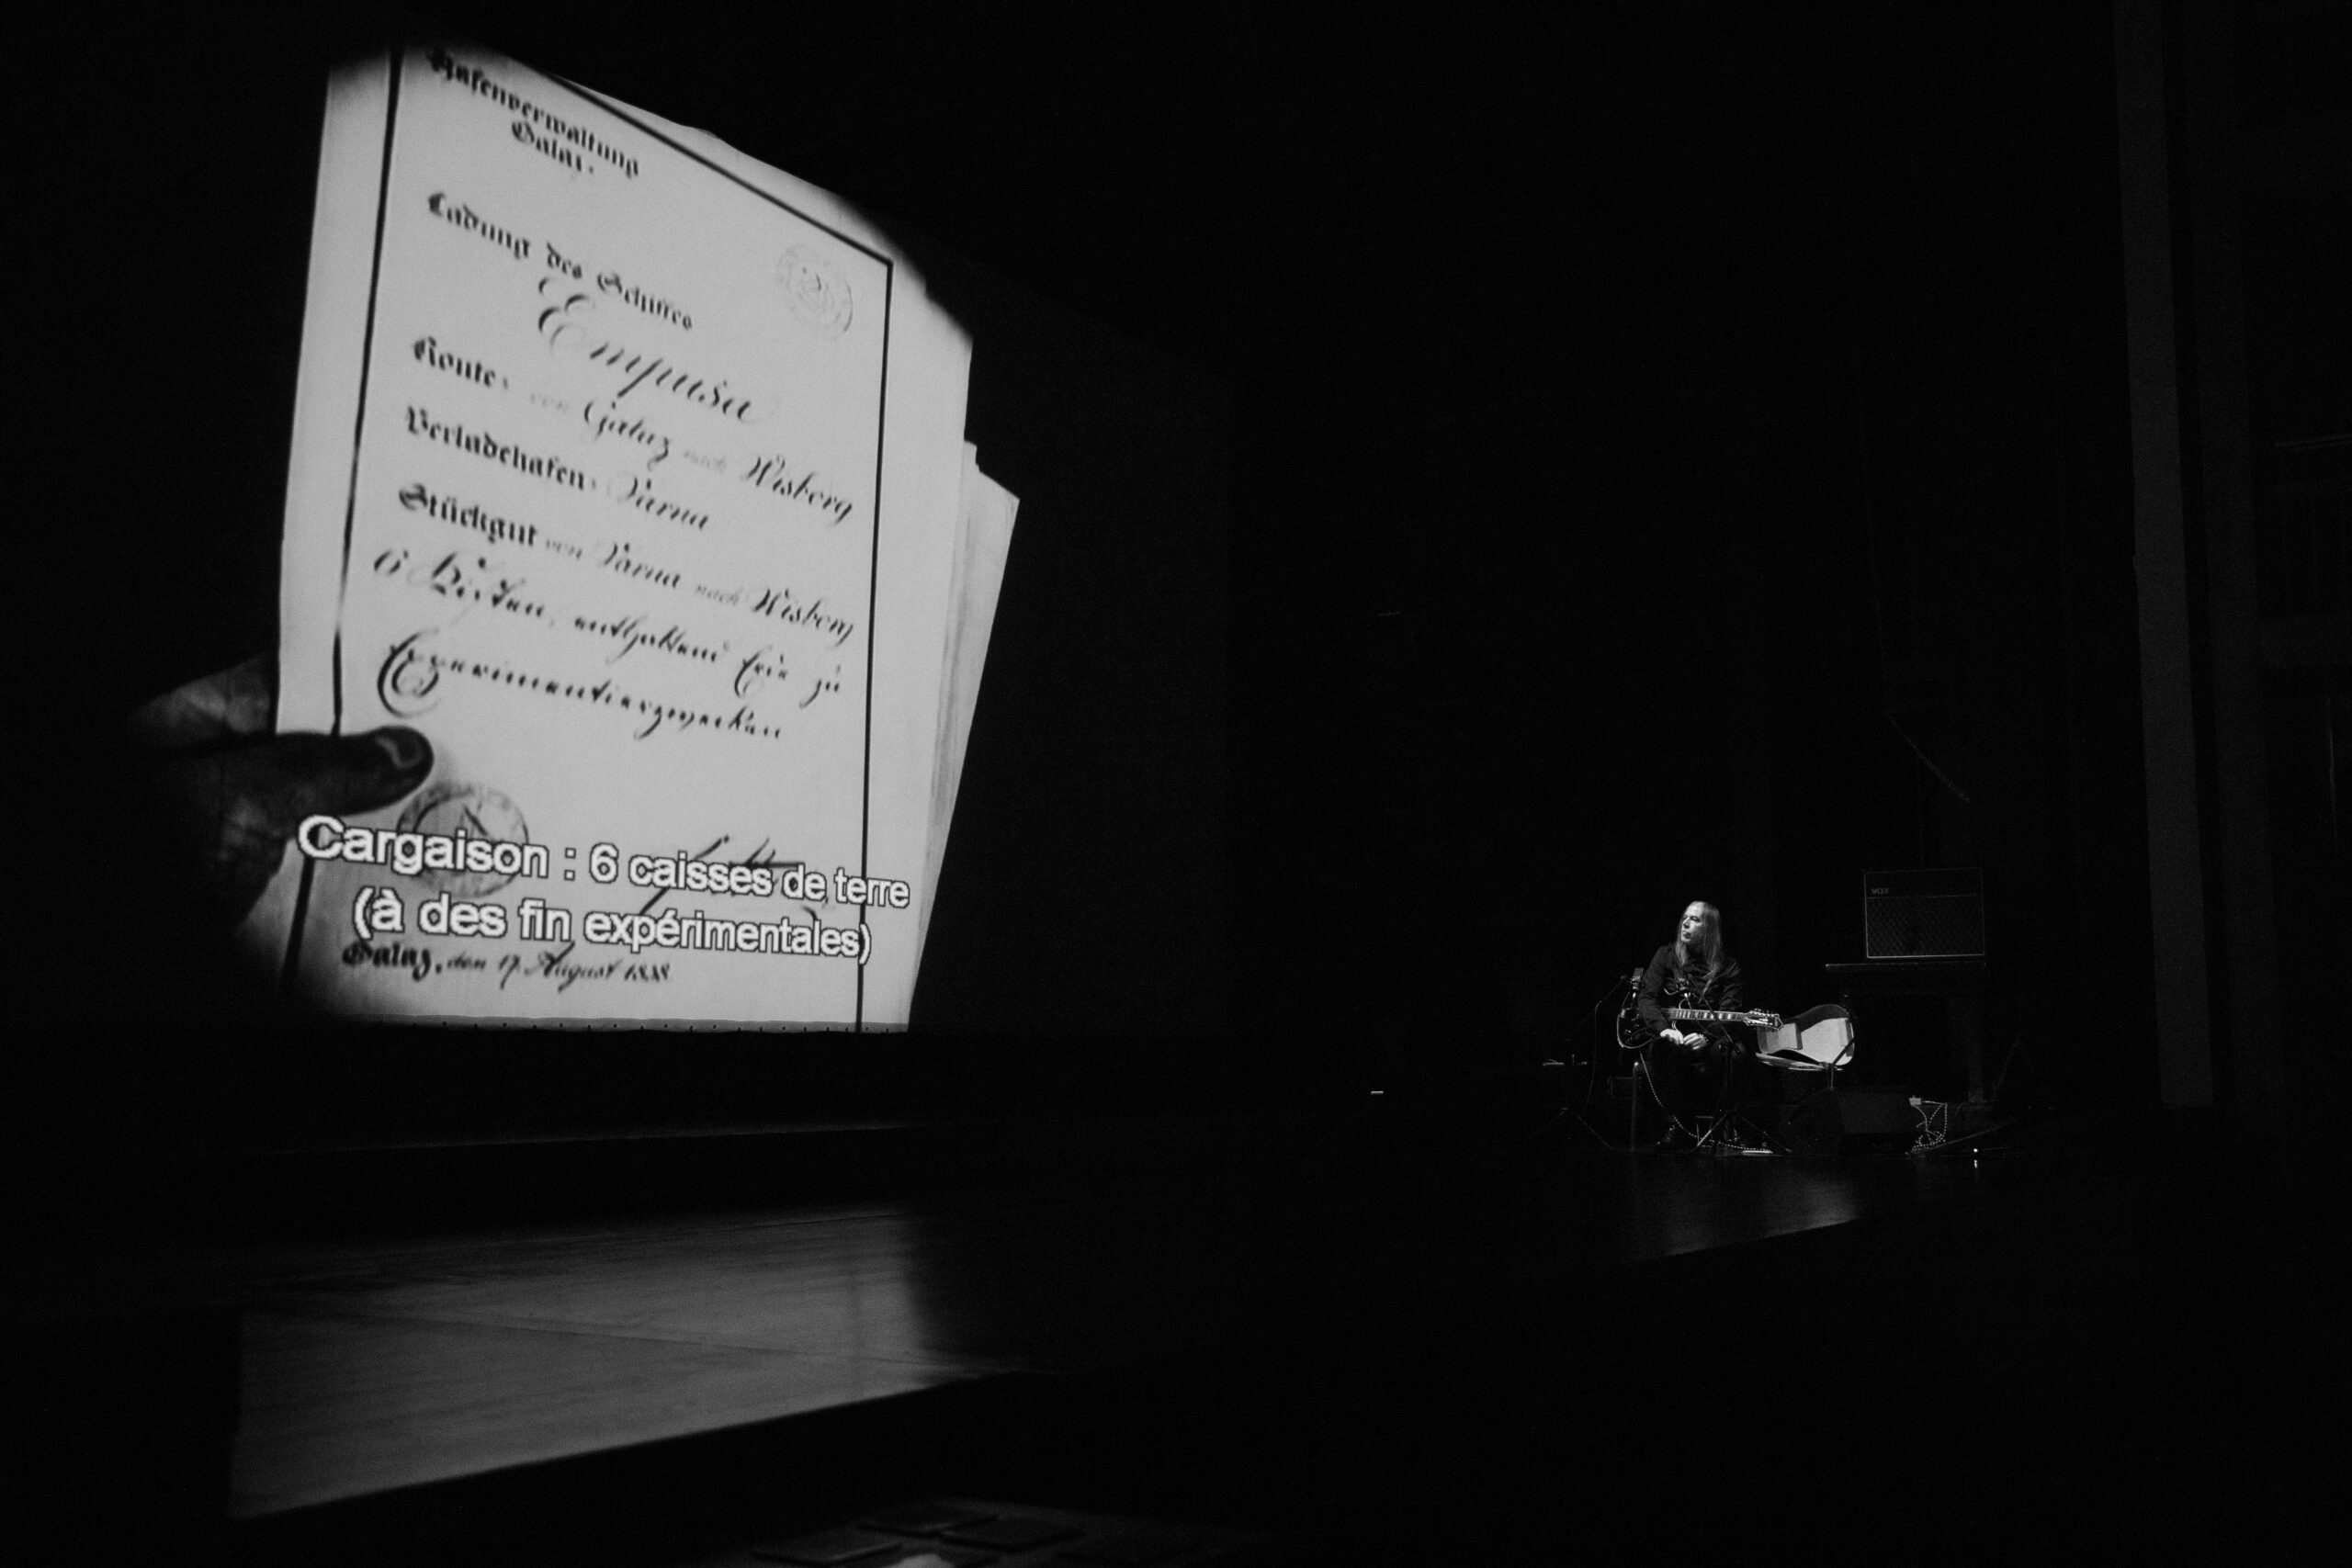 Hafenverwaltung
Galaz.
Ladung des Schiffes
Empusa
Route: von Galaz nach Wisborg
Verladehafen: Varna
Stückgut von Varna nach Wisborg
6 Kisten, enthaltend Erde zu
Experimentierzwecken
Cargaison : 6 caisses de terre
(à des fin expérimentales)
Galaz, den 17. August 1838
VOX